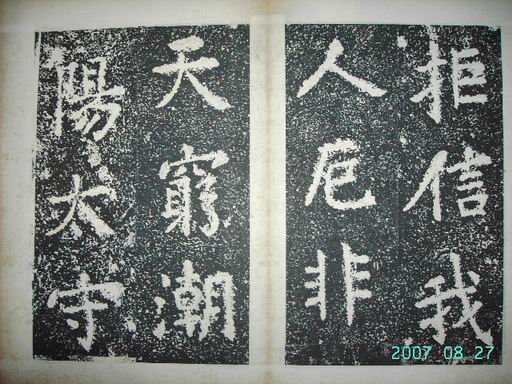 拒信我
人厄非
天窮潮
陽太守
2007 08 27